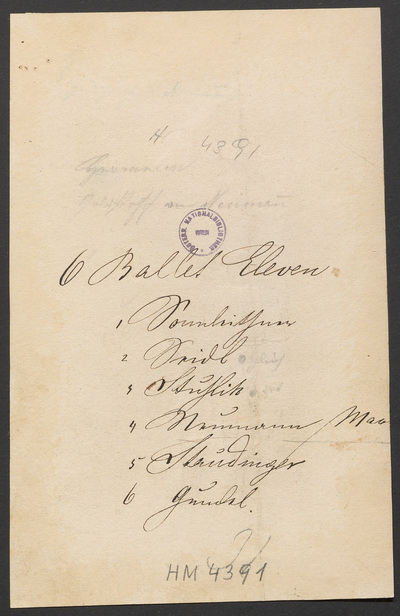 H 4391
ÖSTERR. NATIONALBIBLIOTHEK WIEN
6 Ballet Eleven
1 Sonnleithner
2 Seidl
3 Stuhlik
4 Neumann Max
5 Staudinger
6 Gundel.
HM 4391